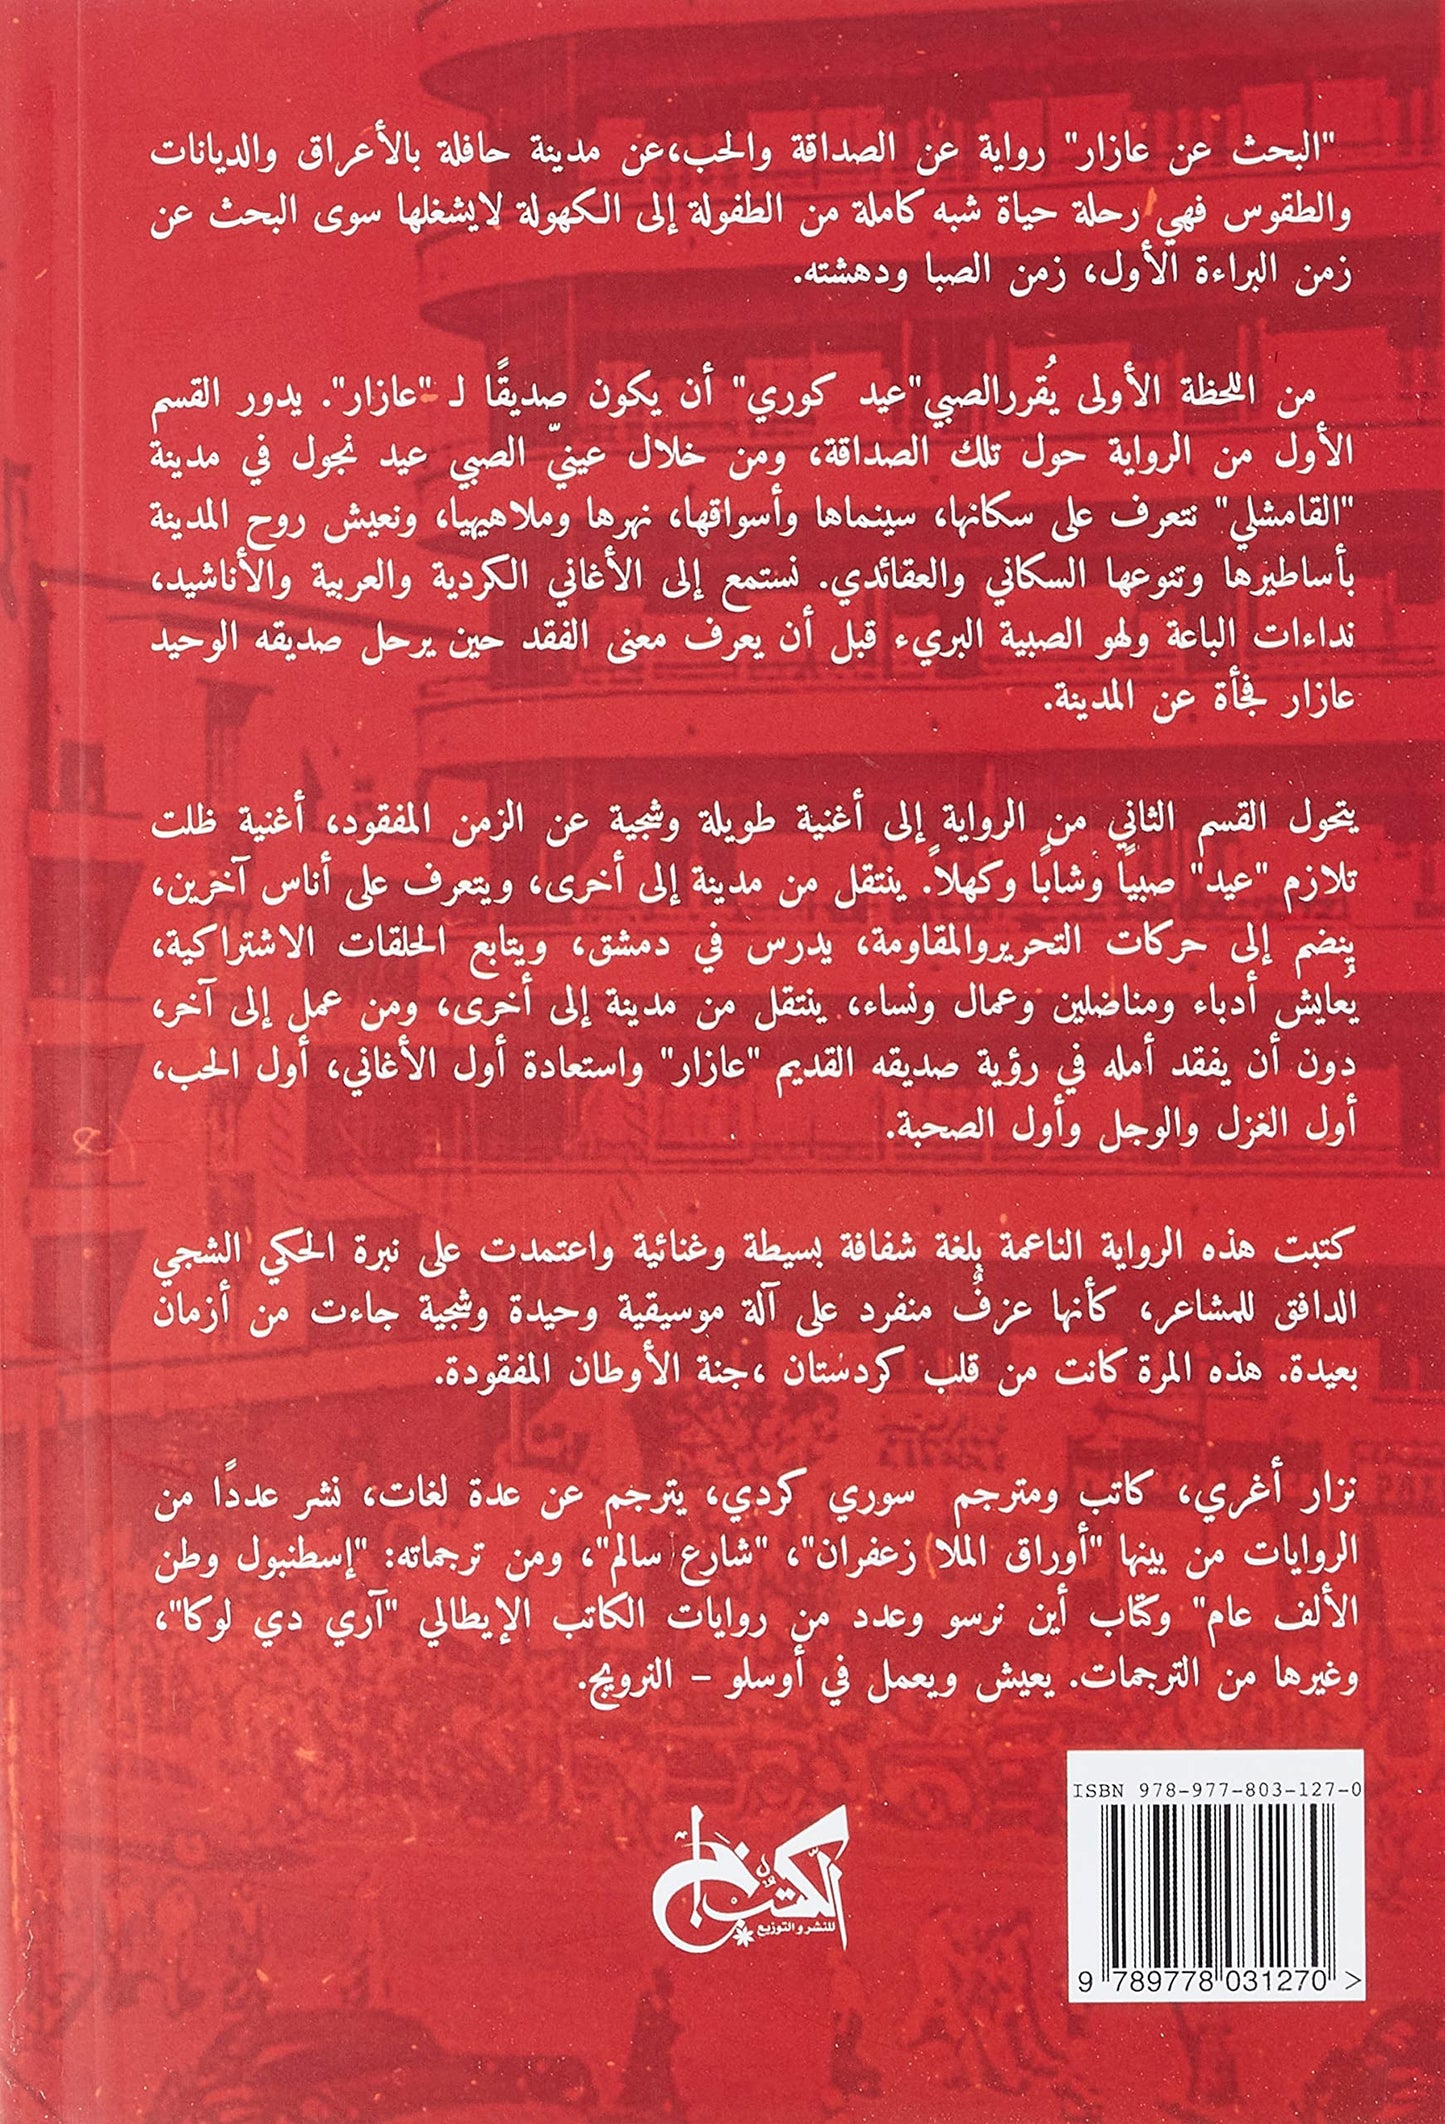 "البحث عن عازار" رواية عن الصداقة والحب،عن مدينة حافلة بالأعراق والديانات
والطقوس فهي رحلة حياة شبه كاملة من الطفولة إلى الكهولة لايشغلها سوى البحث عن
زمن البراءة الأول، زمن الصبا ودهشته.
من اللحظة الأولى يُقررالصبي"عيد كوري" أن يكون صديقًا لـ "عازار". يدور القسم
الأول من الرواية حول تلك الصداقة، ومن خلال عينيّ الصبي عيد نجول في مدينة
"القامشلي" نتعرف على سكانها، سينماها وأسواقها، نهرها وملاهيهيا، ونعيش روح المدينة
بأساطيرها وتنوعها السكاني والعقائدي. نستمع إلى الأغاني الكردية والعربية والأناشيد،
نداءات الباعة ولهو الصبية البريء قبل أن يعرف معنى الفقد حين يرحل صديقه الوحيد
عازار فجأة عن المدينة.
يتحول القسم الثاني من الرواية إلى أغنية طويلة وشجية عن الزمن المفقود، أغنية ظلت
تلازم "عيد" صبيًا وشابًا وكهلاً. ينتقل من مدينة إلى أخرى، ويتعرف على أناس آخرين،
ينضم إلى حركات التحريروالمقاومة، يدرس في دمشق، ويتابع الحلقات الاشتراكية،
يُعايش أدباء ومناضلين وعمال ونساء، ينتقل من مدينة إلى أخرى، ومن عمل إلى آخر،
دون أن يفقد أمله في رؤية صديقه القديم "عازار" واستعادة أول الأغاني، أول الحب،
أول الغزل والوجل وأول الصحبة.
كتبت هذه الرواية الناعمة بلغة شفافة بسيطة وغنائية واعتمدت على نبرة الحكي الشجي
الدافق للمشاعر، كأنها عزفٌ منفرد على آلة موسيقية وحيدة وشجية جاءت من أزمان
بعيدة. هذه المرة كانت من قلب كردستان ،جنة الأوطان المفقودة.
نزار أغري، كاتب ومترجم سوري كردي، يترجم عن عدة لغات، نشر عددًا من
الروايات من بينها "أوراق الملا زعفران"، "شارع سالم"، ومن ترجماته: "إسطنبول وطن
الألف عام" وكتاب أين نرسو وعدد من روايات الكاتب الإيطالي "آري دي لوكا"،
وغيرها من الترجمات. يعيش ويعمل في أوسلو – النرويج.
ISBN 978-977-803-127-0
الكتب خان
للنشر و التوزيع
9 789778 031270 >